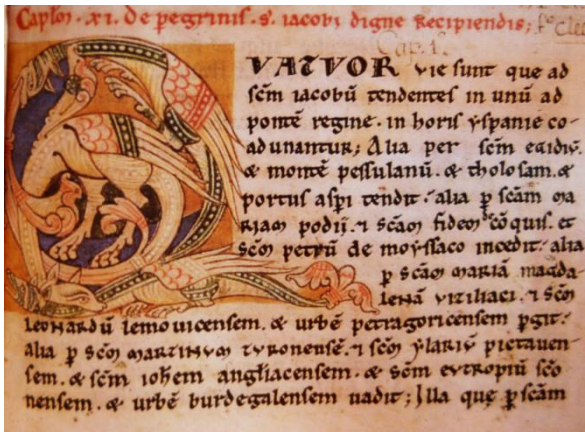 Caplm. xi. de pegrinis. s. iacobi digne Recipiendis;
Cap. I.
QVATVOR vie sunt que ad
scm iacobū tendentes in unū ad
pontē regine. in horis yspanie co-
adunantur; Alia per scm egidiū.
& montē pessulanū. & tholosam. &
portus aspi tendit. alia p scam ma
riam podij. ⁊ scam fidem cōquis. et
scm petrū de moyssaco incedit. alia
p scam mariā magda
lenā viziliaci. ⁊ scm
leonardū lemouicensem. & urbē petragoricensem pgit.
alia p scm martinvm tvronensē. ⁊ scm ylariū pictauen-
sem. & scm iohem angliacensem. & scm evtropiū sco
nensem. & urbē burdegalensem uadit; Illa quę p scam